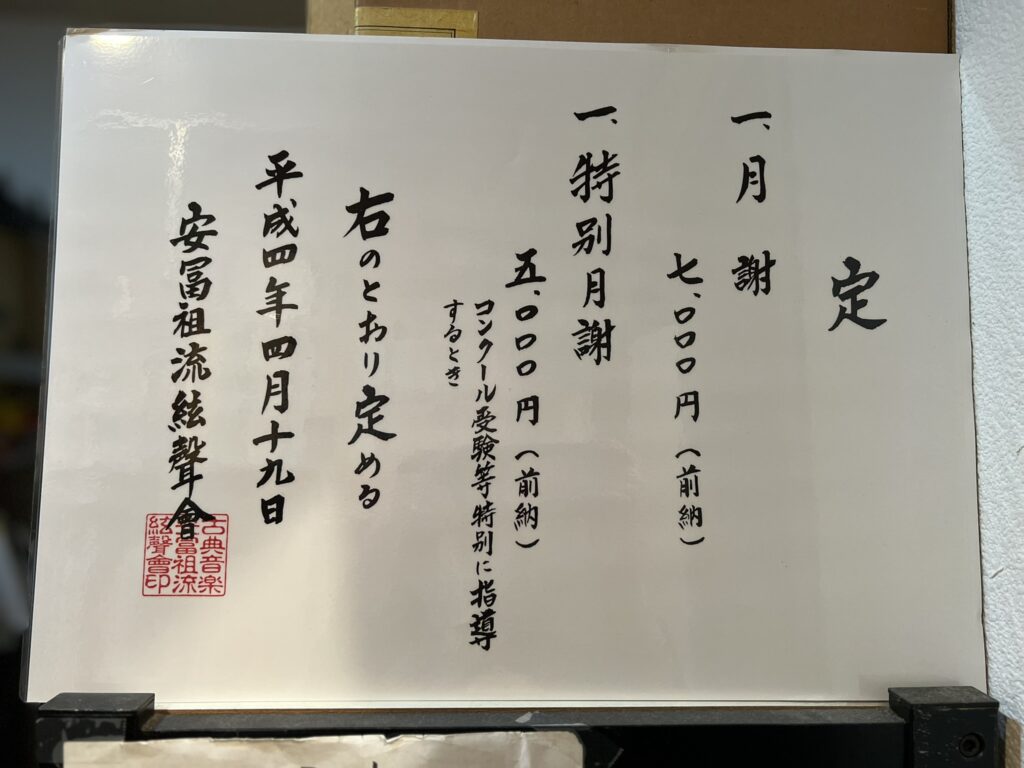 定
一、月謝
七、〇〇〇円（前納）
一、特別月謝
五、〇〇〇円（前納）
コンクール受験等特別に指導
するとき
右のとおり定める
平成四年四月十九日
安冨祖流絃聲會
古典音楽
安冨祖流
絃聲會印